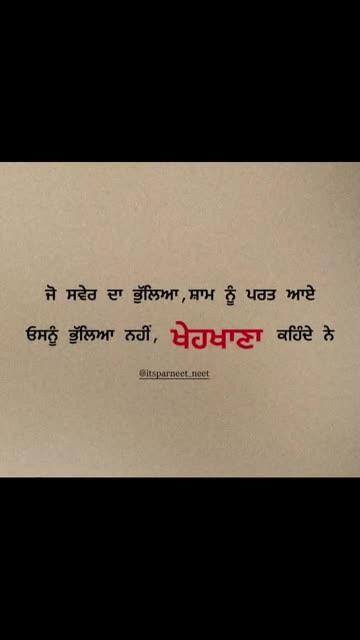 ਜੋ ਸਵੇਰ ਦਾ ਭੁੱਲਿਆ,ਸ਼ਾਮ ਨੂੰ ਪਰਤ ਆਏ
ਓਸਨੂੰ ਭੁੱਲਿਆ ਨਹੀਂ, ਖੇਹਖਾਣਾ ਕਹਿੰਦੇ ਨੇ
@itsparneet_neet